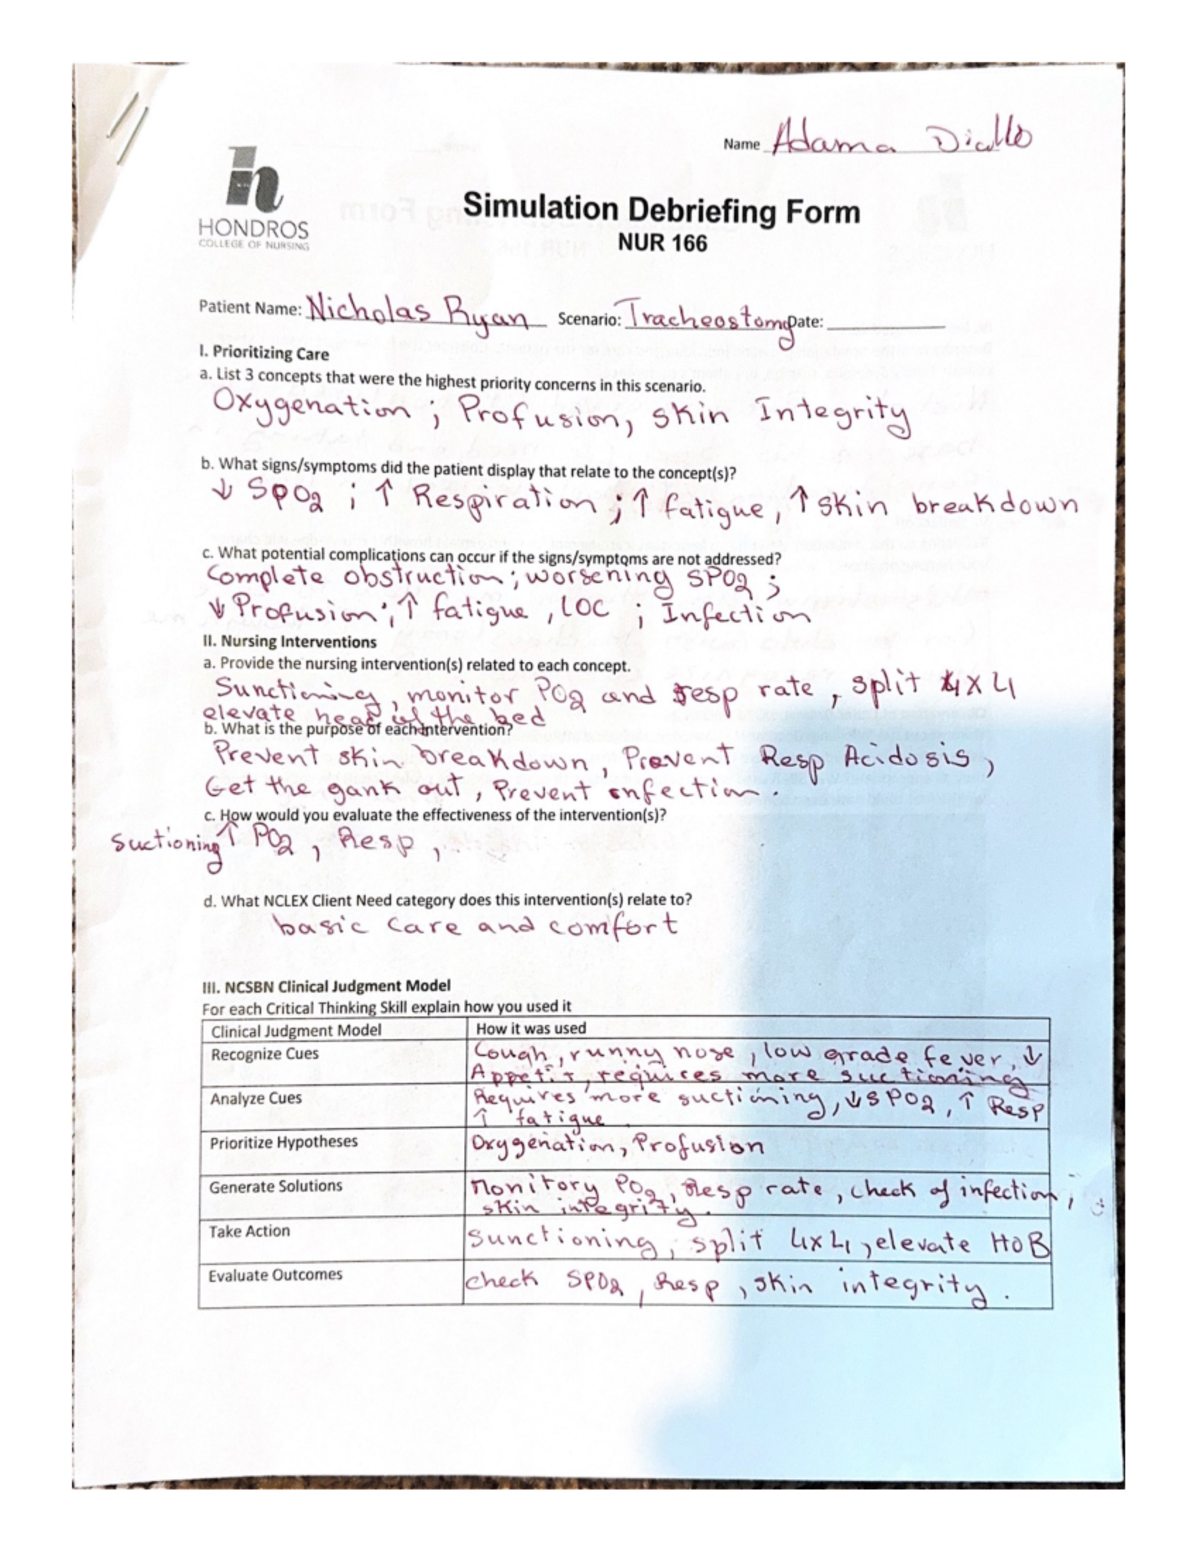 Name Adama Diallo
HONDROS
COLLEGE OF NURSING
Simulation Debriefing Form
NUR 166
Patient Name: Nicholas Ryan Scenario: Tracheostomy Date:
I. Prioritizing Care
a. List 3 concepts that were the highest priority concerns in this scenario.
Oxygenation ; Profusion, skin Integrity
b. What signs/symptoms did the patient display that relate to the concept(s)?
↓ SPO2 ; ↑ Respiration ; ↑ fatigue, ↑ skin breakdown
c. What potential complications can occur if the signs/symptoms are not addressed?
Complete obstruction ; worsening SPO2 ;
↓ Profusion ; ↑ fatigue, LOC ; Infection
II. Nursing Interventions
a. Provide the nursing intervention(s) related to each concept.
Sunctioning, monitor PO2 and resp rate, split 4x4
elevate head of the bed
b. What is the purpose of each intervention?
Prevent skin breakdown, Prevent Resp Acidosis,
Get the gank out, Prevent infection.
c. How would you evaluate the effectiveness of the intervention(s)?
Suctioning ↑ PO2, Resp,
d. What NCLEX Client Need category does this intervention(s) relate to?
basic care and comfort
III. NCSBN Clinical Judgment Model
For each Critical Thinking Skill explain how you used it
Clinical Judgment Model How it was used
Recognize Cues Cough, runny nose, low grade fever, ↓
Appetit, requires more suctioning
Analyze Cues Requires more suctioning, ↓ SPO2, ↑ Resp
↑ fatigue
Prioritize Hypotheses Oxygenation, Profusion
Generate Solutions Monitory PO2, Resp rate, check of infection,
skin integrity.
Take Action Sunctioning, split 4x4, elevate HOB
Evaluate Outcomes check SPO2, Resp, skin integrity.